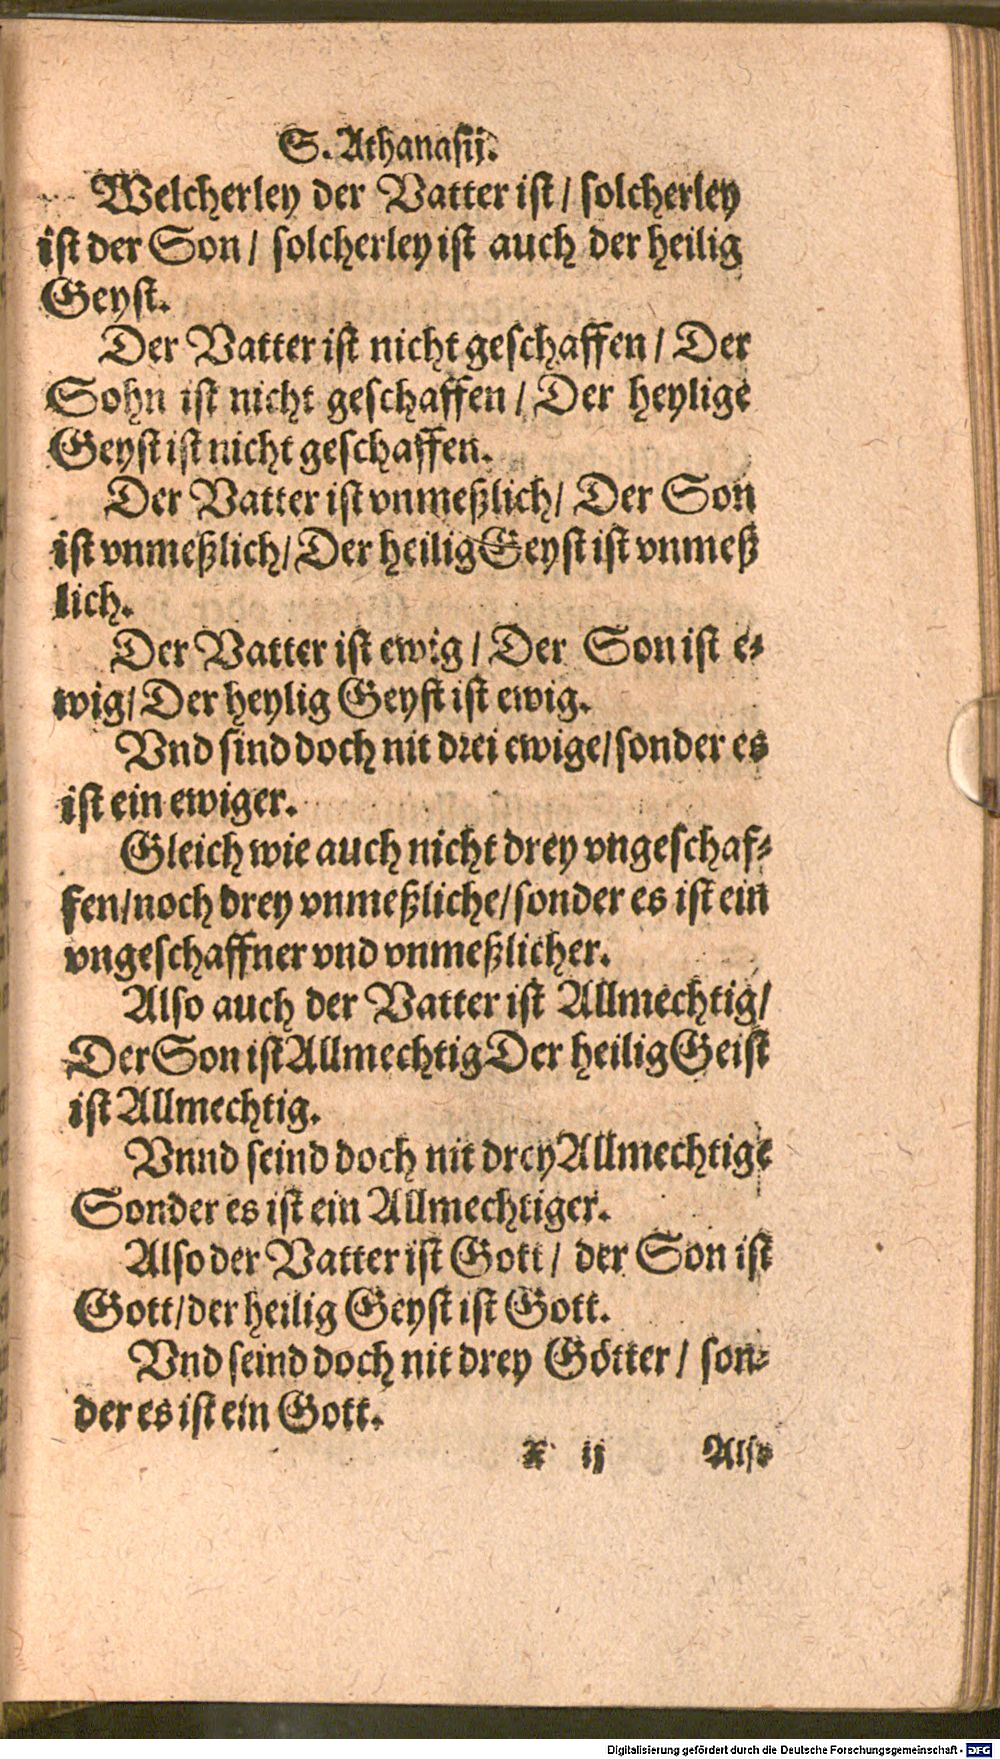 S. Athanasij.
Welcherley der Vatter ist / solcherley
ist der Son / solcherley ist auch der heilig
Geyst.
Der Vatter ist nicht geschaffen / Der
Sohn ist nicht geschaffen / Der heylige
Geyst ist nicht geschaffen.
Der Vatter ist vnmeßlich / Der Son
ist vnmeßlich / Der heilig Geyst ist vnmeß
lich.
Der Vatter ist ewig / Der Son ist e-
wig / Der heylig Geyst ist ewig.
Vnd sind doch nit drei ewige / sonder es
ist ein ewiger.
Gleich wie auch nicht drey vngeschaf-
fen / noch drey vnmeßliche / sonder es ist ein
vngeschaffner vnd vnmeßlicher.
Also auch der Vatter ist Allmechtig /
Der Son ist Allmechtig Der heilig Geist
ist Allmechtig.
Vnnd seind doch nit drey Allmechtige
Sonder es ist ein Allmechtiger.
Also der Vatter ist Gott / der Son ist
Gott / der heilig Geyst ist Gott.
Vnd seind doch nit drey Götter / son-
der es ist ein Gott.
X ij Also
Digitalisierung gefördert durch die Deutsche Forschungsgemeinschaft - DFG